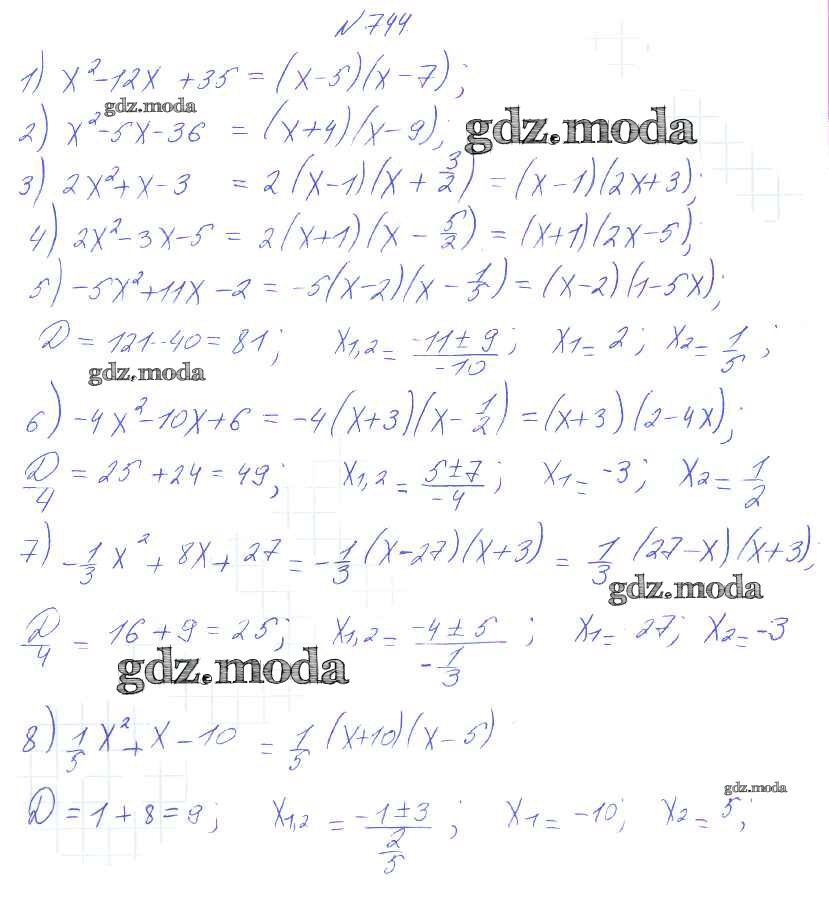 №744
1) x²-12x+35 = (x-5)(x-7);
gdz.moda
2) x²-5x-36 = (x+4)(x-9);
gdz.moda
3) 2x²+x-3 = 2(x-1)(x+3/2) = (x-1)(2x+3);
4) 2x²-3x-5 = 2(x+1)(x-5/2) = (x+1)(2x-5);
5) -5x²+11x-2 = -5(x-2)(x-1/5) = (x-2)(1-5x);
D = 121-40 = 81; x1,2 = (-11±9)/(-10); x1 = 2; x2 = 1/5;
gdz.moda
6) -4x²-10x+6 = -4(x+3)(x-1/2) = (x+3)(2-4x);
D/4 = 25+24 = 49; x1,2 = (5±7)/(-4); x1 = -3; x2 = 1/2
7) -1/3x²+8x+27 = -1/3(x-27)(x+3) = 1/3(27-x)(x+3);
gdz.moda
D/4 = 16+9 = 25; x1,2 = (-4±5)/(-1/3); x1 = 27; x2 = -3
gdz.moda
8) 1/5x²+x-10 = 1/5(x+10)(x-5)
gdz.moda
D = 1+8 = 9; x1,2 = (-1±3)/(2/5); x1 = -10; x2 = 5;